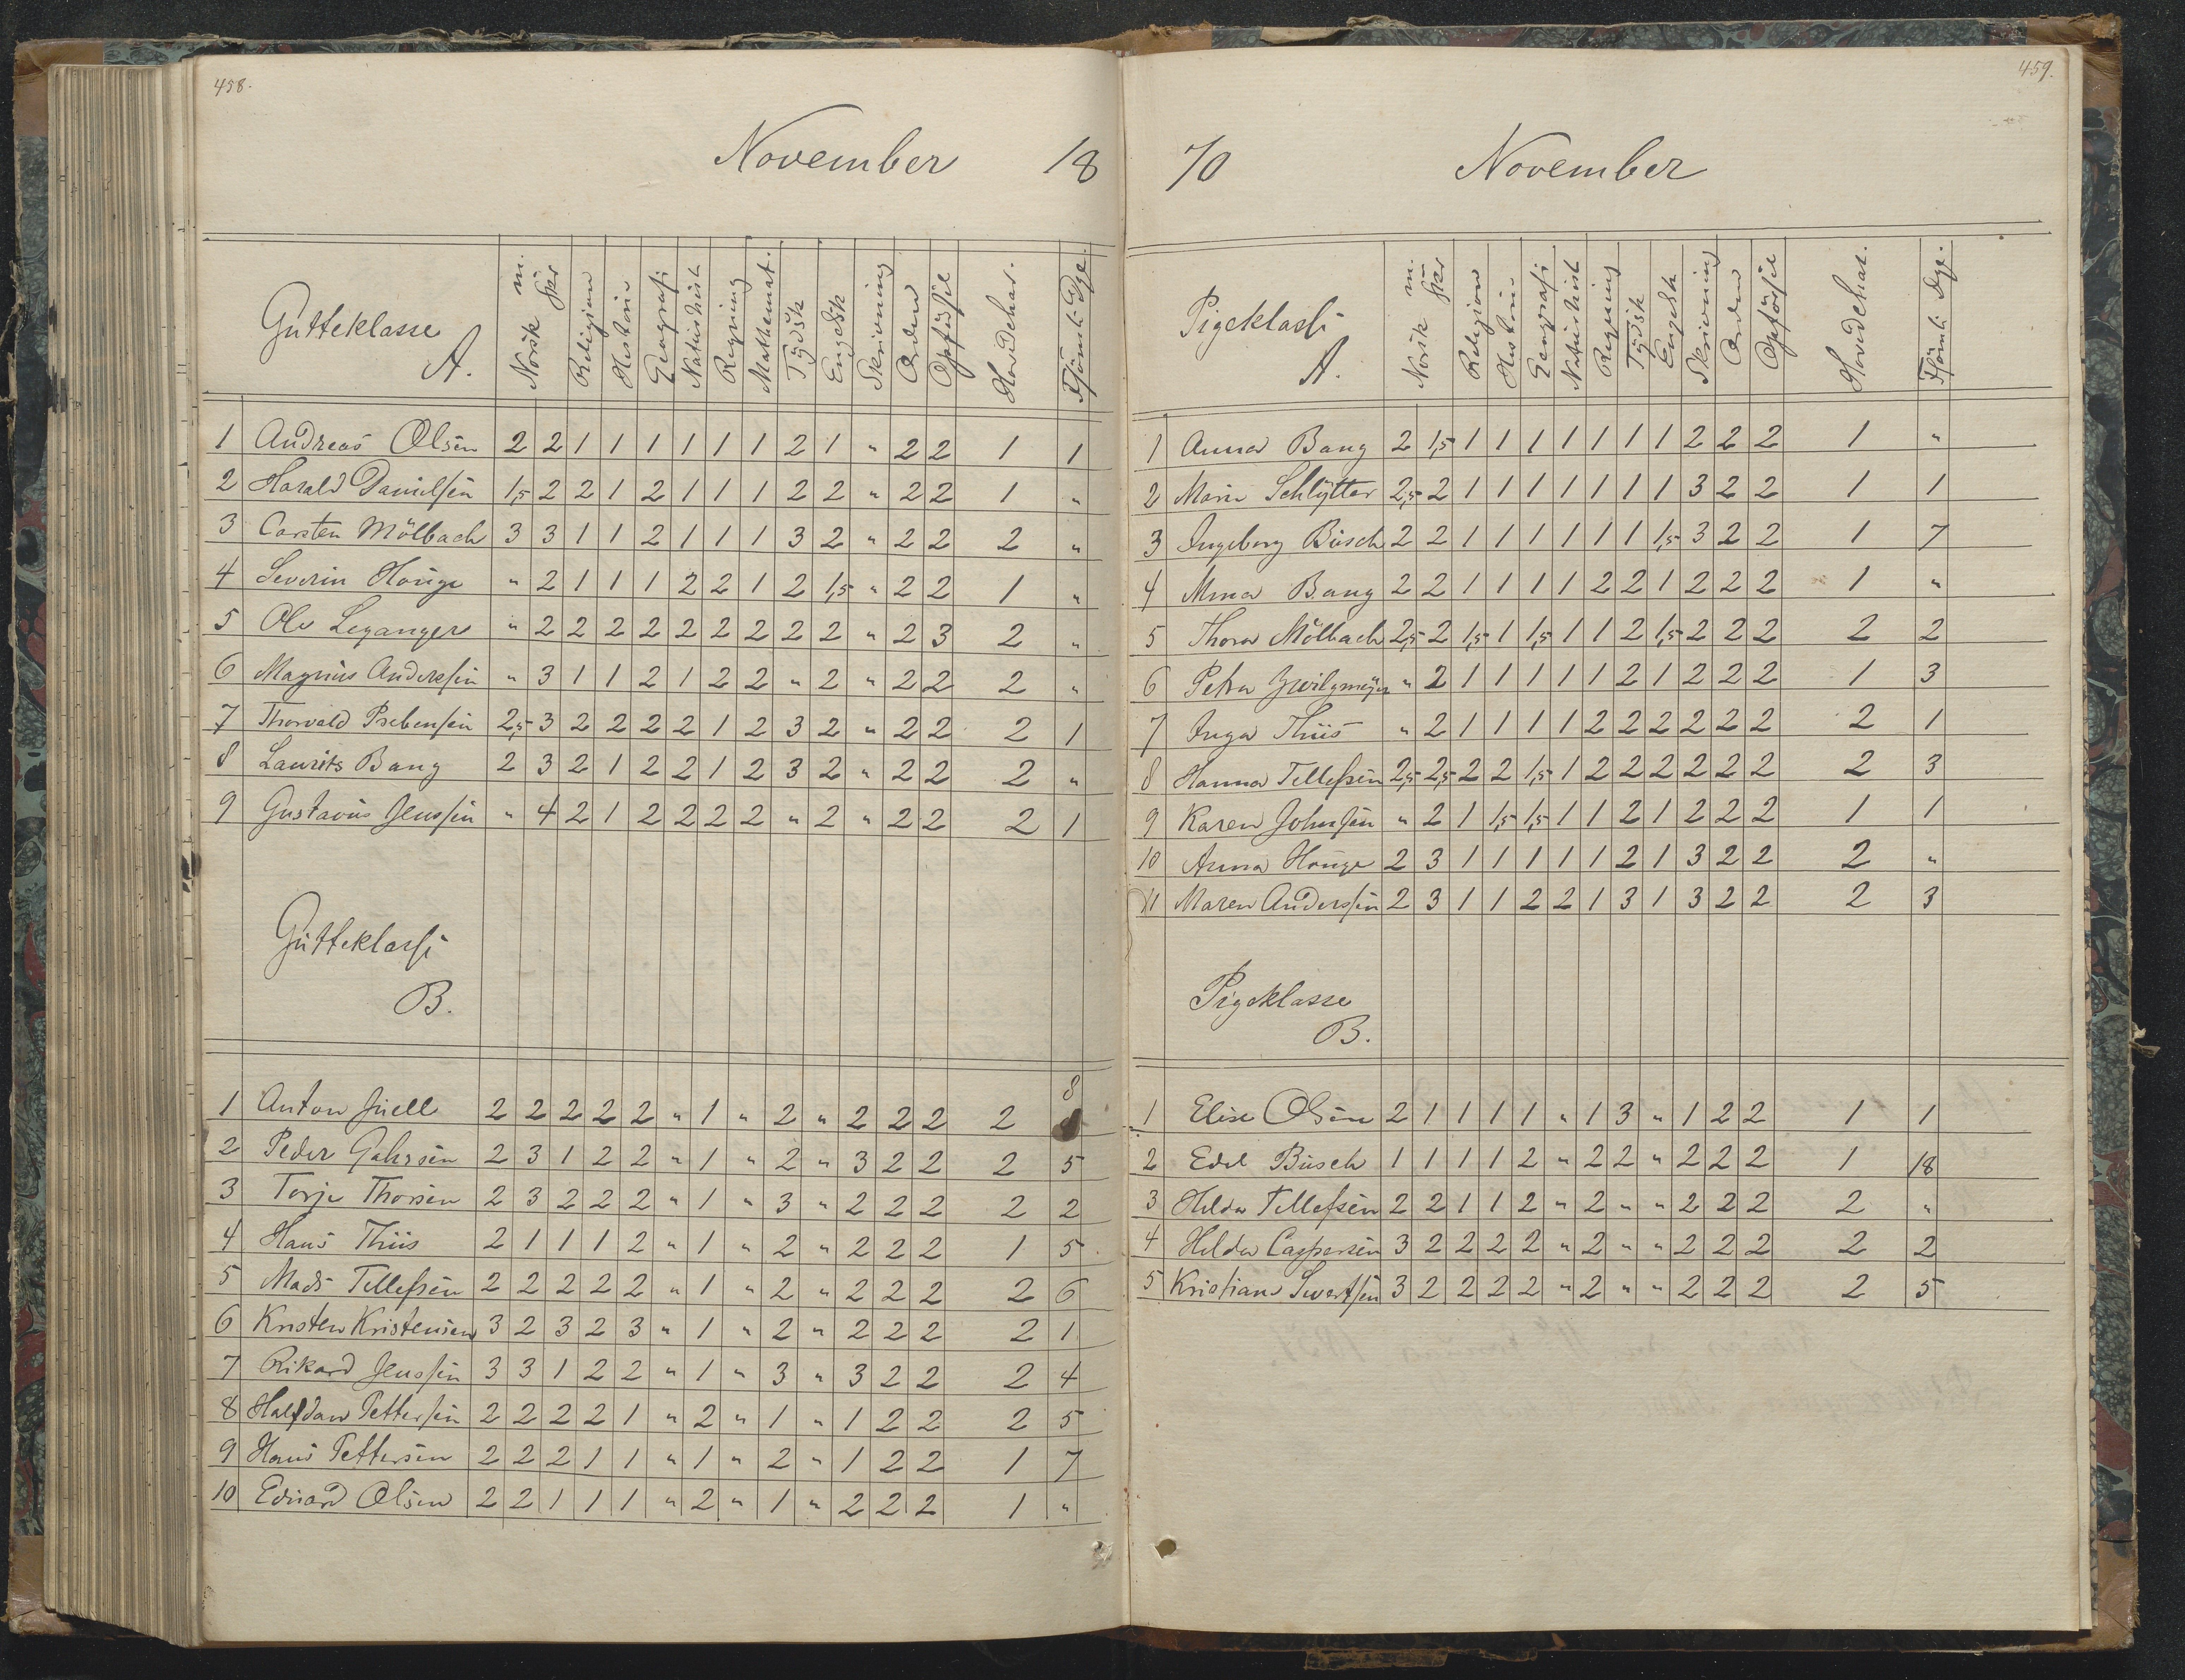 458.
November 18
Gutteklasse A.
Norsk m. skr Religion Historie Geografi Naturhist Regning Mathemat. Tydsk Engelsk Skrivning Orden Opførsel Hovedchar. Forsømte Dge
1 Andreas Olsen 2 2 1 1 1 1 1 1 2 1 " 2 2 1 1
2 Harald Danielsen 1,5 2 2 1 2 1 1 1 2 2 " 2 2 1 "
3 Carsten Mölbach 3 3 1 1 2 1 1 1 3 2 " 2 2 2 "
4 Severin Houge " 2 1 1 1 2 2 1 2 1,5 " 2 2 1 "
5 Ole Leganger " 2 2 2 2 2 2 2 2 2 " 2 3 2 "
6 Magnus Anderssen " 3 1 1 2 1 2 2 " 2 " 2 2 2 "
7 Thorvald Prebensen 2,5 3 2 2 2 2 1 2 3 2 " 2 2 2 1
8 Laurits Bang 2 3 2 1 2 2 1 2 3 2 " 2 2 2 "
9 Gustavus Jenssen " 4 2 1 2 2 2 2 " 2 " 2 2 2 1
Gutteklasse
B.
1 Anton Juell 2 2 2 2 2 " 1 " 2 " 2 2 2 2 8
2 Peder Gahrsen 2 3 1 2 2 " 1 " 2 " 3 2 2 2 5
3 Torje Thorsen 2 3 2 2 2 " 1 " 3 " 2 2 2 2 2
4 Hans Thiis 2 1 1 1 2 " 1 " 2 " 2 2 2 1 5
5 Mads Tellefsen 2 2 2 2 2 " 1 " 2 " 2 2 2 2 6
6 Kristen Kristensen 3 2 3 2 3 " 1 " 2 " 2 2 2 2 1
7 Rikard Jenssen 3 3 1 2 2 " 1 " 3 " 3 2 2 2 4
8 Halfdan Pettersen 2 2 2 2 1 " 2 " 1 " 1 2 2 2 5
9 Hans Pettersen 2 2 2 1 1 " 1 " 2 " 1 2 2 1 7
10 Eduard Olsen 2 2 1 1 1 " 2 " 1 " 2 2 2 1 "
459.
70 November
Pigeklasse A.
Norsk m. skr Religion Historie Geografi Naturhist Regning Tydsk Engelsk Skrivning Orden Opførsel Hovedchar. Forsømte Dge.
1 Anna Bang 2 1,5 1 1 1 1 1 1 1 2 2 2 1 "
2 Marie Schlytter 2,5 2 1 1 1 1 1 1 1 3 2 2 1 1
3 Ingeborg Busch 2 2 1 1 1 1 1 1 1,5 3 2 2 1 7
4 Mina Bang 2 2 1 1 1 1 2 2 1 2 2 2 1 "
5 Thora Mölbach 2,5 2 1,5 1 1,5 1 1 2 1,5 2 2 2 2 2
6 Petra Zwilgmeyer " 2 1 1 1 1 1 2 1 2 2 2 1 3
7 Inga Thiis " 2 1 1 1 1 2 2 2 2 2 2 2 1
8 Hanna Tellefsen 2,5 2,5 2 2 1,5 1 2 2 2 2 2 2 2 3
9 Karen Johnsen " 2 1 1,5 1,5 1 1 2 1 2 2 2 1 1
10 Anna Houge 2 3 1 1 1 1 1 2 1 3 2 2 2 "
11 Maren Anderssen 2 3 1 1 2 2 1 3 1 3 2 2 2 3
Pigeklasse
B.
1 Elise Olsen 2 1 1 1 1 " 1 3 " 1 2 2 1 1
2 Edel Busch 1 1 1 1 2 " 2 2 " 2 2 2 1 18
3 Hilda Tellefsen 2 2 1 1 2 " 2 " " 2 2 2 2 "
4 Hilda Caspersen 3 2 2 2 2 " 2 " " 2 2 2 2 2
5 Kristiane Sivertsen 3 2 2 2 2 " 2 " " 2 2 2 2 5